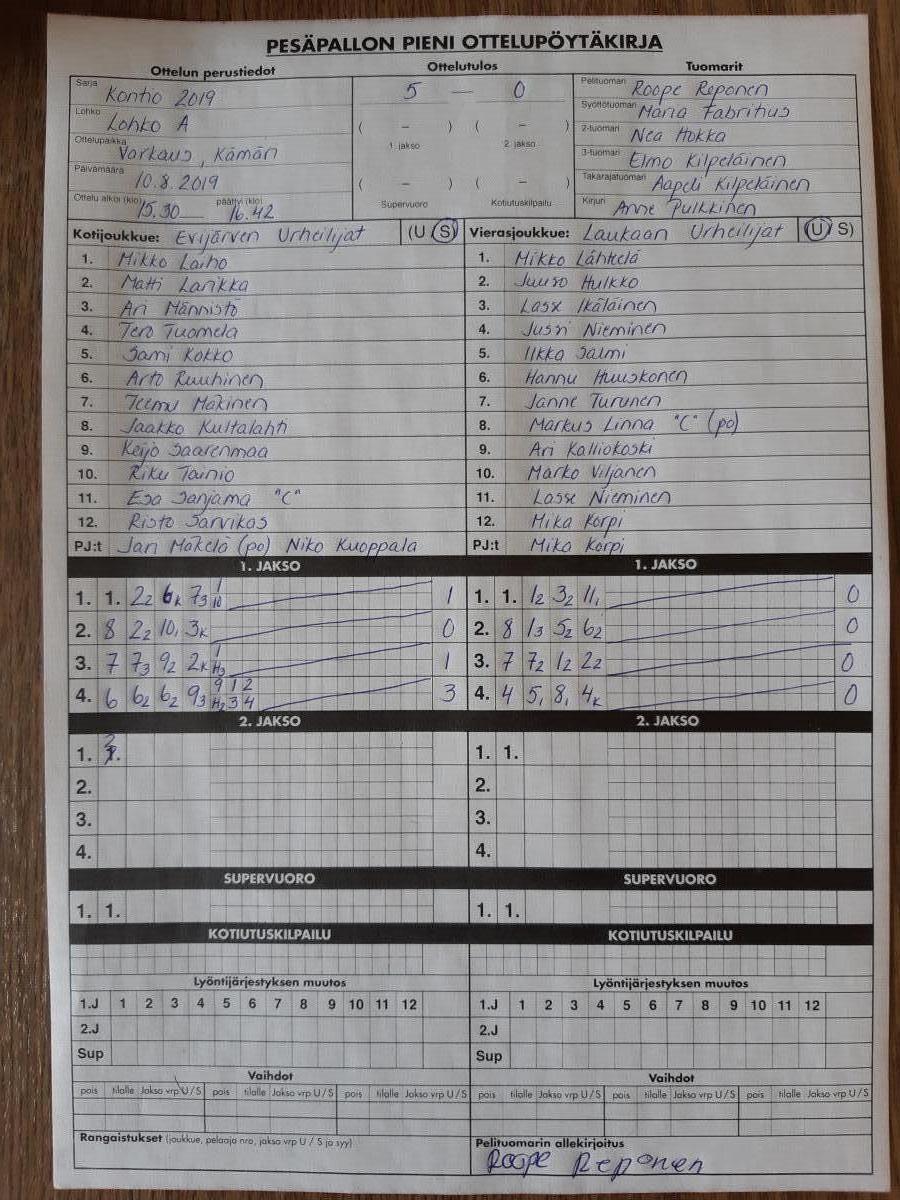 PESÄPALLON PIENI OTTELUPÖYTÄKIRJA
Ottelun perustiedot Ottelutulos Tuomarit
Sarja Kontio 2019
Lohko Lohko A
Ottelupaikka Varkaus, Kämäri
Päivämäärä 10.8.2019
Ottelu alkoi (klo) 15.30 päättyi (klo) 16.42
5 — 0
( – ) ( – )
1. jakso 2. jakso
( – ) ( – )
Supervuoro Kotiutuskilpailu
Pelituomari Roope Reponen
Syöttötuomari Maria Fabritius
2-tuomari Nea Hokka
3-tuomari Elmo Kilpeläinen
Takarajatuomari Aapeli Kilpeläinen
Kirjuri Anne Pulkkinen
Kotijoukkue: Evijärven Urheilijat (U S)
1. Mikko Laiho
2. Matti Larikka
3. Ari Männistö
4. Tero Tuomela
5. Sami Kokko
6. Arto Ruuhinen
7. Teemu Mäkinen
8. Jaakko Kultalahti
9. Keijo Saarenmaa
10. Riku Tainio
11. Esa Sanjama "C"
12. Risto Sarvikas
PJ:t Jari Mäkelä (po) Niko Kuoppala
Vierasjoukkue: Laukaan Urheilijat (U S)
1. Mikko Lähtelä
2. Juuso Hulkko
3. Lasse Ikäläinen
4. Jussi Nieminen
5. Ilkka Salmi
6. Hannu Huuskonen
7. Janne Turunen
8. Markus Linna "C" (po)
9. Ari Kalliokoski
10. Marko Viljanen
11. Lasse Nieminen
12. Mika Korpi
PJ:t Mika Korpi
1. JAKSO
1. 1. 2₂ 6ₖ 7₃ 1 10 1
2. 8 2₂ 10₁ 3ₖ 0
3. 7 7₃ 9₂ 2ₖ 1 H₃ 1
4. 6 6₂ 6₂ 9₃ 9 1 2 H₂ 3 4 3
1. JAKSO
1. 1. 1₂ 3₂ 11₁ 0
2. 8 1₃ 5₂ 6₂ 0
3. 7 7₂ 1₂ 2₂ 0
4. 4 5₁ 8₁ 4ₖ 0
2. JAKSO
1. 1.
2.
3.
4.
2. JAKSO
1. 1.
2.
3.
4.
SUPERVUORO
1. 1.
SUPERVUORO
1. 1.
KOTIUTUSKILPAILU
KOTIUTUSKILPAILU
Lyöntijärjestyksen muutos
1.J 1 2 3 4 5 6 7 8 9 10 11 12
2.J
Sup
Lyöntijärjestyksen muutos
1.J 1 2 3 4 5 6 7 8 9 10 11 12
2.J
Sup
Vaihdot
pois tilalle Jakso vrp U/S pois tilalle Jakso vrp U/S pois tilalle Jakso vrp U/S
Vaihdot
pois tilalle Jakso vrp U/S pois tilalle Jakso vrp U/S pois tilalle Jakso vrp U/S
Rangaistukset (joukkue, pelaaja nro, jakso vrp U / S ja syy)
Pelituomarin allekirjoitus
Roope Reponen